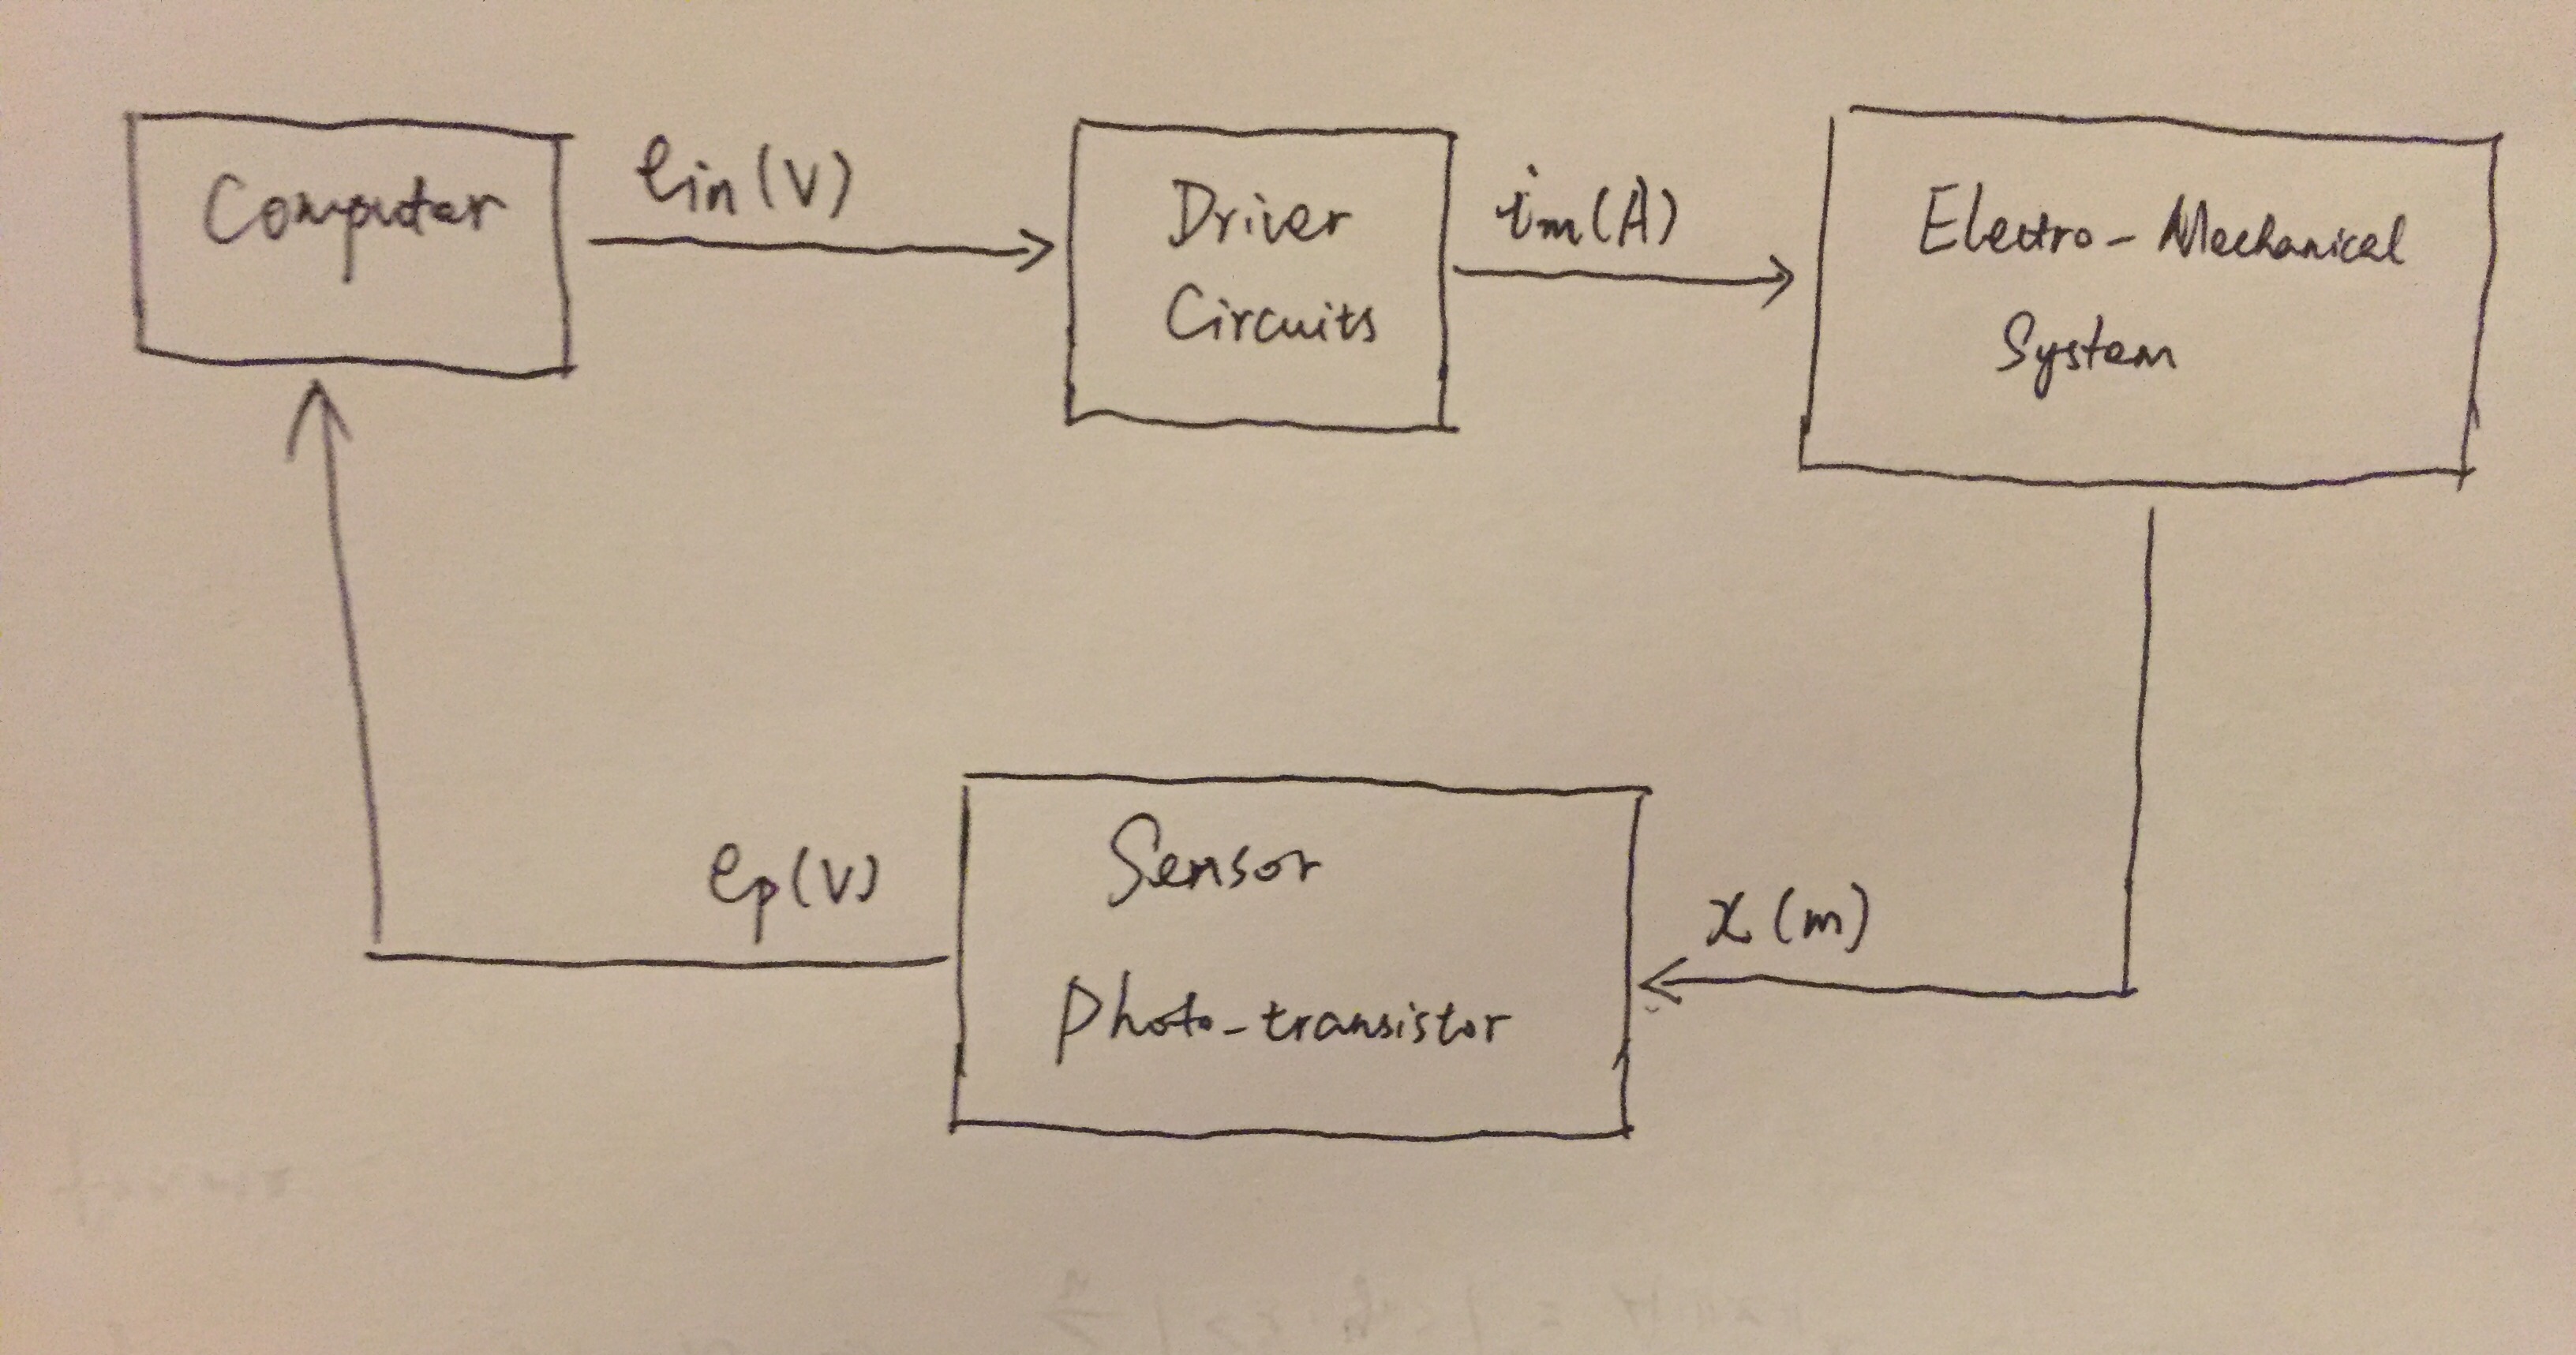 Computer
ein(V)
Driver
Circuits
im(A)
Electro-Mechanical
System
ep(V)
Sensor
Photo-transistor
x(m)